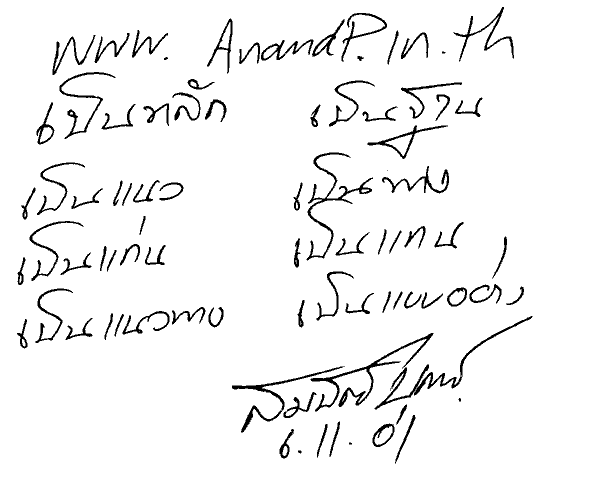 www. AnandP.in.th
เป็นหลัก เป็นฐาน
เป็นแนว เป็นทาง
เป็นแก่น เป็นแทน
เป็นแนวทาง เป็นแบบอย่าง
6.11.01